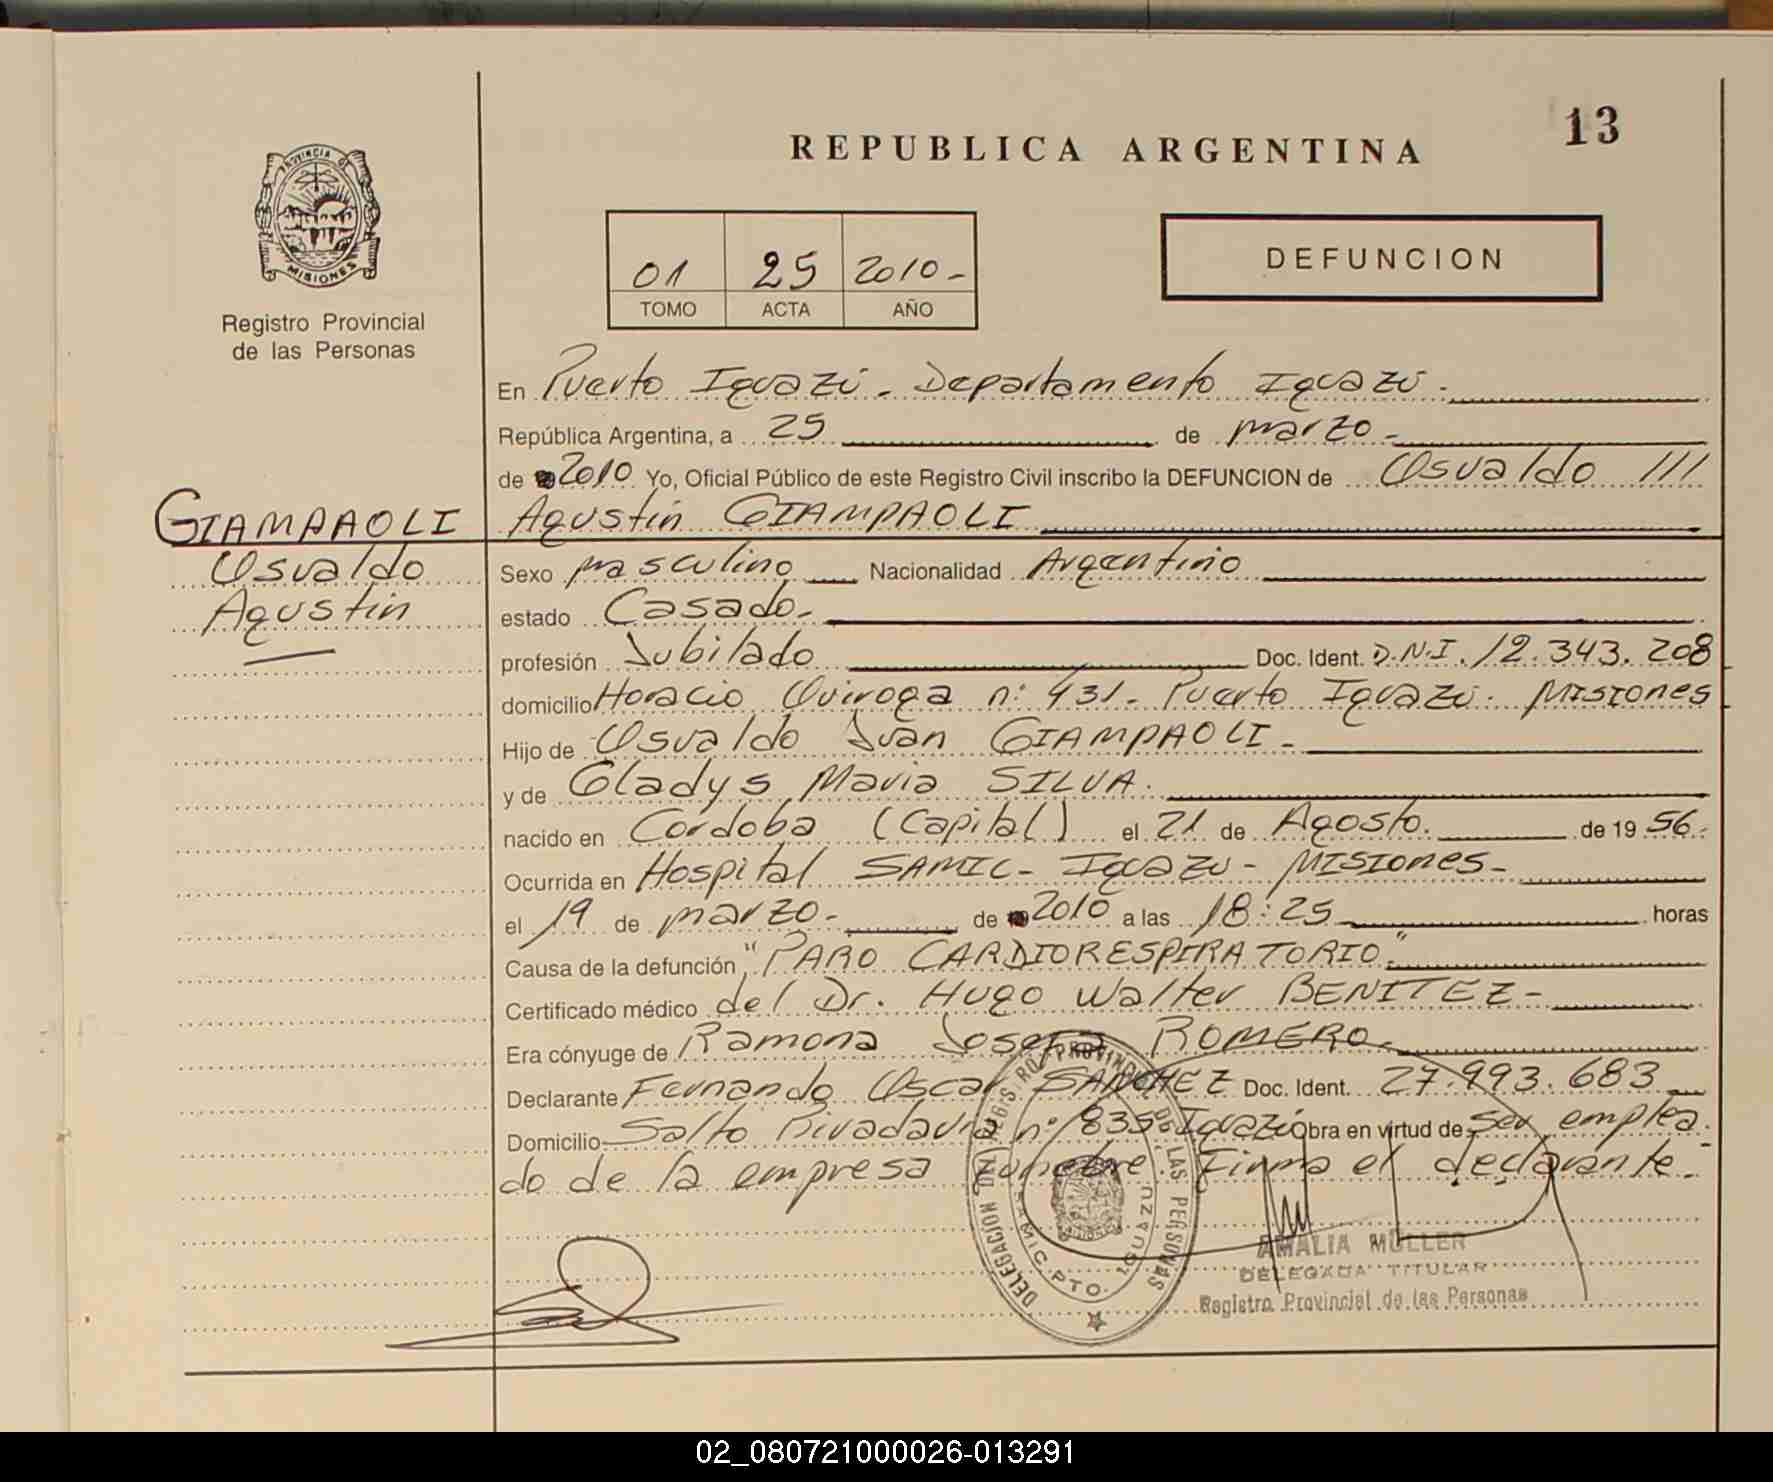 13
REPUBLICA ARGENTINA
PROVINCIA DE
MISIONES
Registro Provincial
de las Personas
01 25 2010-
TOMO ACTA AÑO
DEFUNCION
En Puerto Iguazú - Departamento Iguazú.
República Argentina, a 25 de marzo -
de 2010 Yo, Oficial Público de este Registro Civil inscribo la DEFUNCION de Osvaldo ///
Agustín GIAMPAOLI
GIAMPAOLI
Osvaldo
Agustín
Sexo masculino Nacionalidad Argentino
estado Casado.-
profesión Jubilado Doc. Ident. D.N.I. 12.343.208
domicilio Horacio Quiroga n: 431 - Puerto Iguazú. Misiones
Hijo de Osvaldo Juan GIAMPAOLI -
y de Gladys Maria SILVA.
nacido en Cordoba (Capital) el 21 de Agosto. de 19 56.
Ocurrida en Hospital SAMIC - Iguazu - Misiones -
el 19 de marzo.- de 2010 a las 18:25 horas
Causa de la defunción "PARO CARDIORESPIRATORIO."
Certificado médico del Dr. Hugo Walter BENITEZ -
Era cónyuge de Ramona Josefa ROMERO.
Declarante Fernando Oscar SANCHEZ Doc. Ident. 27.993.683
Domicilio Salto Rivadavia n: 835 Iguazú Obra en virtud de ser emplea
do de la empresa funebre. Firma el declarante.
DELEGACION DEL REGISTRO PROVINCIAL DE LAS PERSONAS
PTO. IGUAZU
AMALIA MÜLLER
DELEGADA TITULAR
Registro Provincial de las Personas
02_080721000026-013291